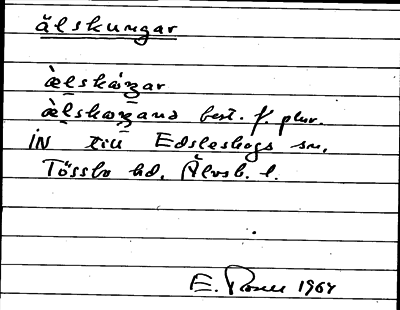 älskungar
æ̀lskáŋar
æ̀lskaŋana best. f. plur.
IN till Edsleskogs sn,
Tössbo hd, Älvsb. l.
E. 1964